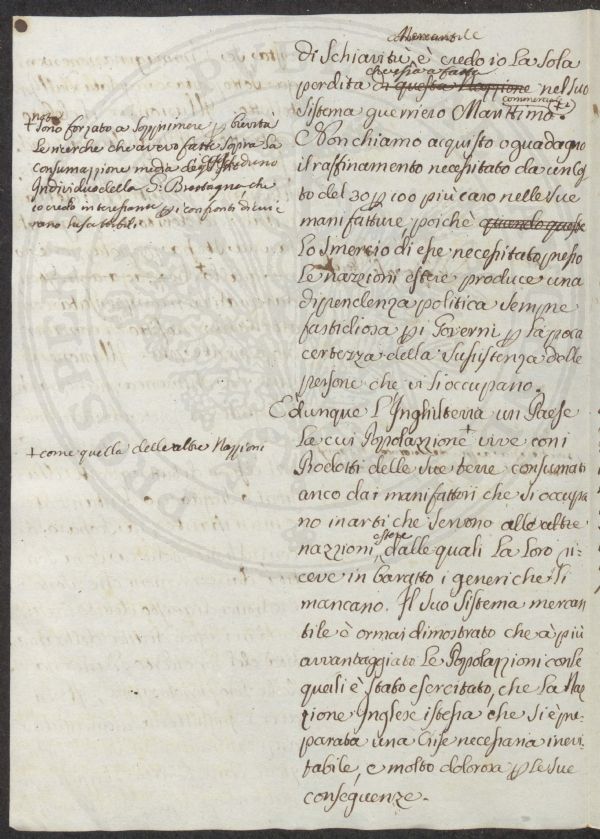 Mercantile
di Schiavitù è credo io La sola
che essa à fatta
perdita di questa Nazzione nel suo
commerciale
sistema guerriero Marittimo.
Non chiamo acquisto o guadagno
il raffinamento necessitato da un Cos
to del 30 p 100 più caro nelle sue
manifatture poichè quando queste
lo smercio di esse necessitato presso
le nazzioni estere produce una
dipendenza politica sempre
fastidiosa p i Governi p la poca
certezza della sussistenza delle
persone che vi si occupano.
E dunque L'Inghilterra un Paese
La cui Popolazzione + vive con i
Prodotti delle sue terre consumati
anco da i manifattori che si occupa
no in arti che servono alle altre
estere
nazzioni, dalle quali La loro ri=
ceve in baratto i generi che li
mancano. Il suo sistema mercan
tile è ormai dimostrato che à più
avvantaggiato Le Popolazzioni con le
quali è stato esercitato, che La Naz
zione Inglese istessa che si è pre
parata una Crise necessaria inevi
tabile, e molto dolorosa p le sue
conseguenze.
nota
+ sono forzato a sopprimere p brevità
Le ricerche che avevo fatte sopra La
consumazzione media degl' d'uno
Individuo della G. Brettagna che
io credo interessante p i confronti di cui e
rano suscettibili
+ come quella delle altre Nazzioni
PROSPERI